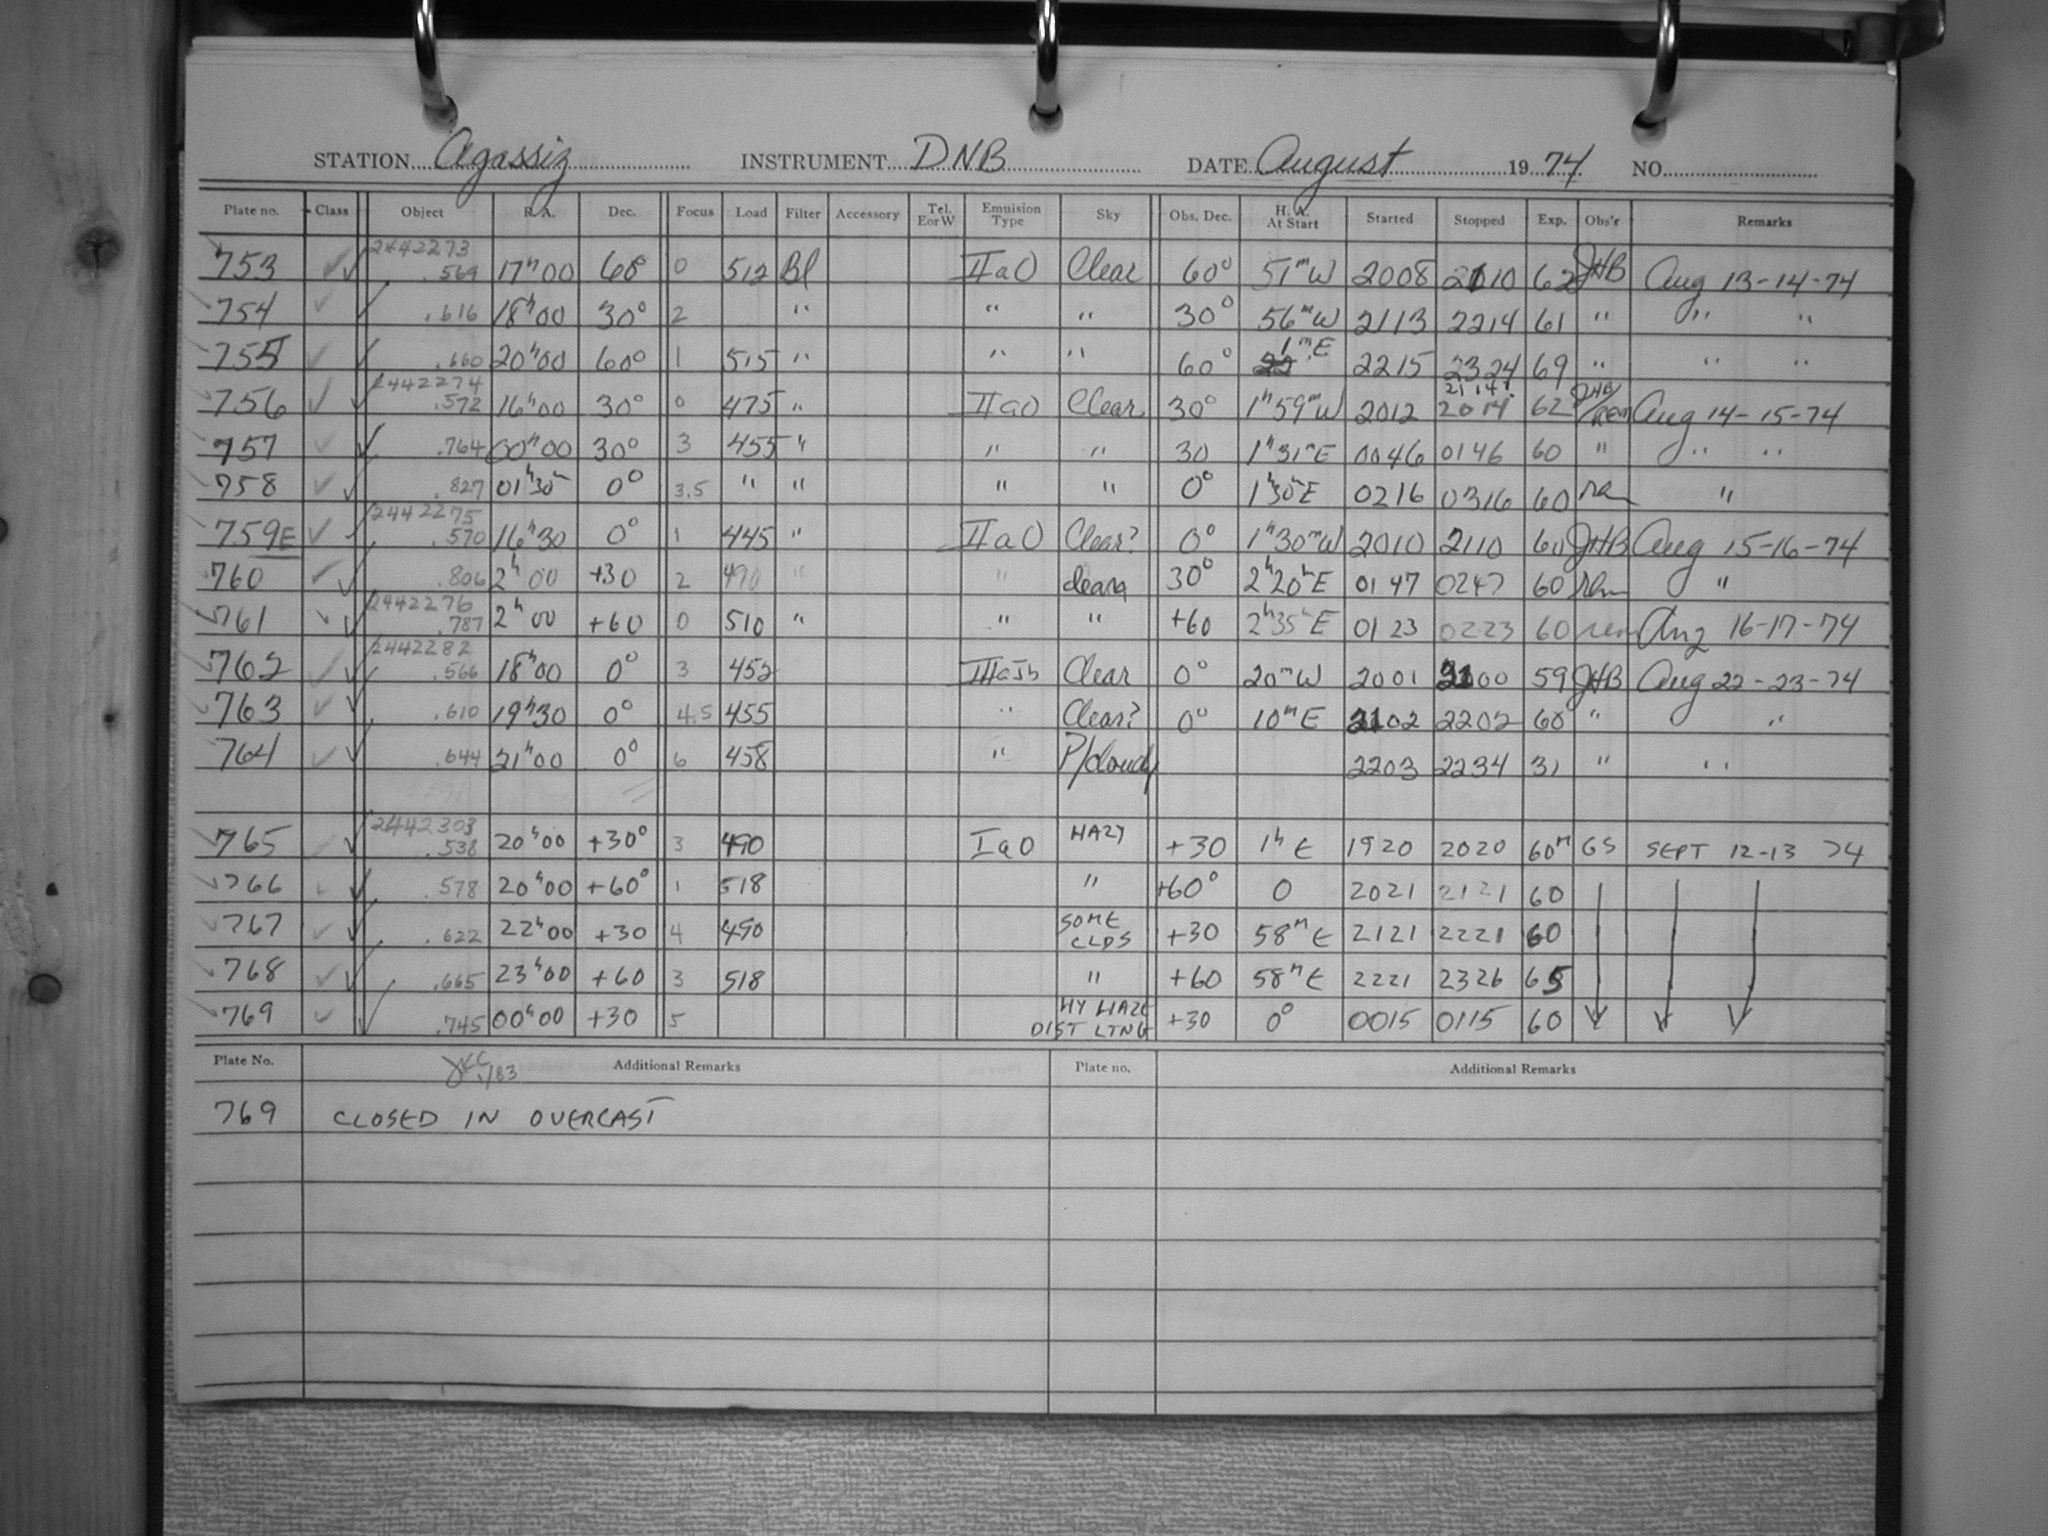 STATION Agassiz INSTRUMENT DNB DATE August 19 74 NO.
Plate no. Class Object R.A. Dec. Focus Load Filter Accessory Tel. E or W Emulsion Type Sky Obs. Dec. H. A. At Start Started Stopped Exp. Obs'r Remarks
753 2442273 .569 17h00 60° 0 512 Bl IIaO Clear 60° 51m W 2008 2110 62 JHB Aug 13-14-74
754 .616 18h00 30° 2 " " " 30° 56m W 2113 2214 61 " " "
755 .660 20h00 60° 1 515 " " " 60° 1m E 2215 2324 69 " " "
756 2442274 .572 16h00 30° 0 475 " IIaO Clear 30° 1h59m W 2012 2114 62 JHB/ Aug 14-15-74
757 .764 00h00 30° 3 455 " " " 30 1h31m E 0046 0146 60 " " "
758 .827 01h30 0° 3.5 " " " " 0° 1h30 E 0216 0316 60 "
759E 2442275 .570 16h30 0° 1 445 " IIaO Clear? 0° 1h30m W 2010 2110 60 JHB Aug 15-16-74
760 .806 2h00 +30 2 490 " " 30° 2h20 E 0147 0247 60 "
761 2442276 .787 2h00 +60 0 510 " " " +60 2h35 E 0123 0223 60 Aug 16-17-74
762 2442282 .566 18h00 0° 3 452 IIIaJb Clear 0° 20m W 2001 2100 59 JHB Aug 22-23-74
763 .610 19h30 0° 4.5 455 " Clear? 0° 10m E 2102 2202 60 " "
764 .644 21h00 0° 6 458 " P/cloudy 2203 2234 31 " "
765 2442303 .538 20h00 +30° 3 490 IaO HAZY +30 1h E 1920 2020 60m GS SEPT 12-13 74
766 .578 20h00 +60° 1 518 " +60° 0 2021 2121 60
767 .622 22h00 +30 4 490 SOME CLDS +30 58m E 2121 2221 60
768 .665 23h00 +60 3 518 " +60 58m E 2221 2326 65
769 .745 00h00 +30 5 HY HAZE DIST LTNG +30 0° 0015 0115 60
Plate No. Additional Remarks Plate no. Additional Remarks
769 CLOSED IN OVERCAST